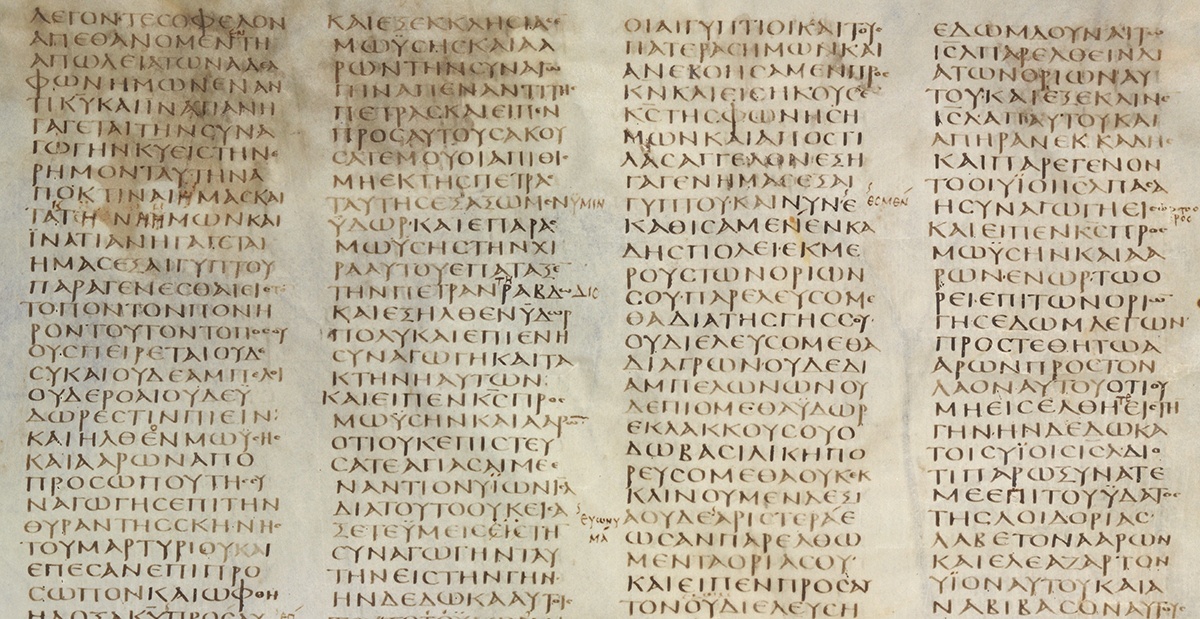 ΛΕΓΟΝΤΕΣΟΦΕΛΟΝ
ΑΠΕΘΑΝΟΜΕΝΤΗ
ΑΠΩΛΕΙΑΤΩΝΑΔΕΛ
ΦΩΝΗΜΩΝΕΝΑΝ
ΤΙΚΥΚΑΙΙΝΑΤΙΑΝΗ
ΓΑΓΕΤΑΙΤΗΝΣΥΝΑ
ΓΩΓΗΝΚΥΕΙΣΤΗΝΕ
ΡΗΜΟΝΤΑΥΤΗΝΑ
ΠΟΚΤΙΝΑΙΗΜΑΣΚΑΙ
ΝΗΜΩΝΚΑΙ
ΪΝΑΤΙΑΝΗΓΑΓΕΤΑΙ
ΗΜΑΣΕΞΑΙΓΥΠΤΟΥ
ΠΑΡΑΓΕΝΕΣΘΑΙΕΙΣ
ΤΟΠΟΝΤΟΝΠΟΝΗ
ΡΟΝΤΟΥΤΟΝΤΟΠΟΣΟΥ
ΟΥΣΠΕΙΡΕΤΑΙΟΥΔΕ
ΣΥΚΑΙΟΥΔΕΑΜΠΕΛΟΙ
ΟΥΔΕΡΟΑΙΟΥΔΕΥ
ΔΩΡΕΣΤΙΝΠΙΕΙΝ:
ΚΑΙΗΛΘΕΝΜΩΫΣΗΣ
ΚΑΙΑΑΡΩΝΑΠΟ
ΠΡΟΣΩΠΟΥΤΗΣΣΥ
ΝΑΓΩΓΗΣΕΠΙΤΗΝ
ΘΥΡΑΝΤΗΣΣΚΗΝΗΣ
ΤΟΥΜΑΡΤΥΡΙΟΥΚΑΙ
ΕΠΕΣΑΝΕΠΙΠΡΟ
ΣΩΠΟΝΚΑΙΩΦΘΗ
ΚΑΙΕΞΕΚΚΛΗΣΙΑΣΕ
ΜΩΫΣΗΣΚΑΙΑΑ
ΡΩΝΤΗΝΣΥΝΑΓΩ
ΓΗΝΑΠΕΝΑΝΤΙΤΗΣ
ΠΕΤΡΑΣΚΑΙΕΙΠΕΝ
ΠΡΟΣΑΥΤΟΥΣΑΚΟΥ
ΣΑΤΕΜΟΥΟΙΑΠΙΘΙΣ
ΜΗΕΚΤΗΣΠΕΤΡΑΣ
ΤΑΥΤΗΣΕΞΑΞΩΜΕΝΫΜΙΝ
ΫΔΩΡ·ΚΑΙΕΠΑΡΑΣ
ΜΩΫΣΗΣΤΗΝΧΙ
ΡΑΑΥΤΟΥΕΠΑΤΑΞΕ
ΤΗΝΠΕΤΡΑΝΤΗΡΑΒΔΩΔΙΣ
ΚΑΙΕΞΗΛΘΕΝΫΔΩΡ
ΠΟΛΥΚΑΙΕΠΙΕΝΗ
ΣΥΝΑΓΩΓΗΚΑΙΤΑ
ΚΤΗΝΗΑΥΤΩΝ:
ΚΑΙΕΙΠΕΝΚΣΠΡΟΣ
ΜΩΫΣΗΝΚΑΙΑΑΡΩΝ
ΟΤΙΟΥΚΕΠΙΣΤΕΥ
ΣΑΤΕΑΓΙΑΣΑΙΜΕΕ
ΝΑΝΤΙΟΝΫΙΩΝΙΗΛ
ΔΙΑΤΟΥΤΟΟΥΚΕΙΣΑ
ΞΕΤΕΫΜΕΙΣΕΙΣΤΗ
ΣΥΝΑΓΩΓΗΝΤΑΥ
ΤΗΝΕΙΣΤΗΝΓΗΝ·
ΗΝΔΕΔΩΚΑΑΥΤΟΙΣ
ΟΙΑΙΓΥΠΤΙΟΙΚΑΙΤΟΥΣ
ΠΑΤΕΡΑΣΗΜΩΝΚΑΙ
ΑΝΕΒΟΗΣΑΜΕΝΠΡΟΣ
ΚΝΚΑΙΕΙΣΗΚΟΥΣΕ
ΚΣΤΗΣΦΩΝΗΣΗ
ΜΩΝΚΑΙΑΠΟΣΤΙ
ΛΑΣΑΓΓΕΛΟΝΕΞΗ
ΓΑΓΕΝΗΜΑΣΕΞΑΙ
ΓΥΠΤΟΥΚΑΙΝΥΝΕ ΕΣΜΕΝ
ΚΑΘΙΣΑΜΕΝΕΝΚΑ
ΔΗΣΠΟΛΕΙΕΚΜΕ
ΡΟΥΣΤΩΝΟΡΙΩΝ
ΣΟΥ·ΠΑΡΕΛΕΥΣΟΜΕ
ΘΑΔΙΑΤΗΣΓΗΣΣΟΥ·
ΟΥΔΙΕΛΕΥΣΟΜΕΘΑ
ΔΙΑΓΡΩΝΟΥΔΕΔΙ
ΑΜΠΕΛΩΝΩΝΟΥ
ΔΕΠΙΟΜΕΘΑΫΔΩΡ
ΕΚΛΑΚΚΟΥΣΟΥΟ
ΔΩΒΑΣΙΛΙΚΗΠΟ
ΡΕΥΣΟΜΕΘΑΟΥΚΕΚ
ΚΛΙΝΟΥΜΕΝΔΕΞΙ
ΕΥΩΝΥΜΑ
ΑΟΥΔΕΑΡΙΣΤΕΡΑΕ
ΩΣΑΝΠΑΡΕΛΘΩ
ΜΕΝΤΑΟΡΙΑΣΟΥ
ΚΑΙΕΙΠΕΝΠΡΟΣΑΥ
ΤΟΝΟΥΔΙΕΛΕΥΣΗ
ΕΔΩΜΔΟΥΝΑΙΤΩ
ΙΣΛΠΑΡΕΛΘΕΙΝΔΙ
ΑΤΩΝΟΡΙΩΝΑΥ
ΤΟΥ·ΚΑΙΕΞΕΚΛΙΝΕ
ΙΣΛΑΠΑΥΤΟΥΚΑΙ
ΑΠΗΡΑΝΕΚΚΑΔΗΣ
ΚΑΙΠΑΡΕΓΕΝΟΝ
ΤΟΟΙΥΪΟΙΙΣΛΠΑΣΑ
ΗΣΥΝΑΓΩΓΗΕΙΣΩΡΤΟΟΡΟΣ
ΚΑΙΕΙΠΕΝΚΣΠΡΟΣ
ΜΩΫΣΗΝΚΑΙΑΑ
ΡΩΝ·ΕΝΩΡ·ΤΩΟ
ΡΕΙ·ΕΠΙΤΩΝΟΡΙΩΝ
ΓΗΣΕΔΩΜΛΕΓΩΝ·
ΠΡΟΣΤΕΘΗΤΩΑ
ΑΡΩΝΠΡΟΣΤΟΝ
ΛΑΟΝΑΥΤΟΥΟΤΙΟΥ
ΜΗΕΙΣΕΛΘΗΤΕΕΙΣΤΗ
ΓΗΝ·ΗΝΔΕΔΩΚΑ
ΤΟΙΣΥΪΟΙΣΙΣΛΔΙΟ
ΤΙΠΑΡΩΞΥΝΑΤΕ
ΜΕΕΠΙΤΟΥΫΔΑΤΟΣ
ΤΗΣΛΟΙΔΟΡΙΑΣ·
ΛΑΒΕΤΟΝΑΑΡΩΝ
ΚΑΙΕΛΕΑΖΑΡΤΟΝ
ΥΪΟΝΑΥΤΟΥΚΑΙΑ
ΝΑΒΙΒΑΣΟΝΑΥΤΟΥΣ